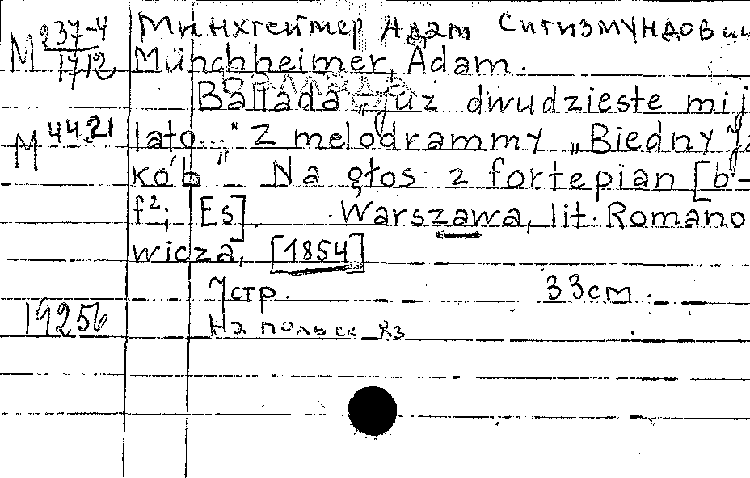 М 237-4/1712
Минхгеймер Адам Сигизмундович
Münchheimer, Adam.
Ballada „Już dwudzieste mij
М 4421
lato..." Z melodrammy „Biedny Ja
kób" Na głos z fortepian [b-
f²; Es]. Warszawa, lit. Romano
wicza, [1854]
7 стр. 33 см.
19256
На польск. яз